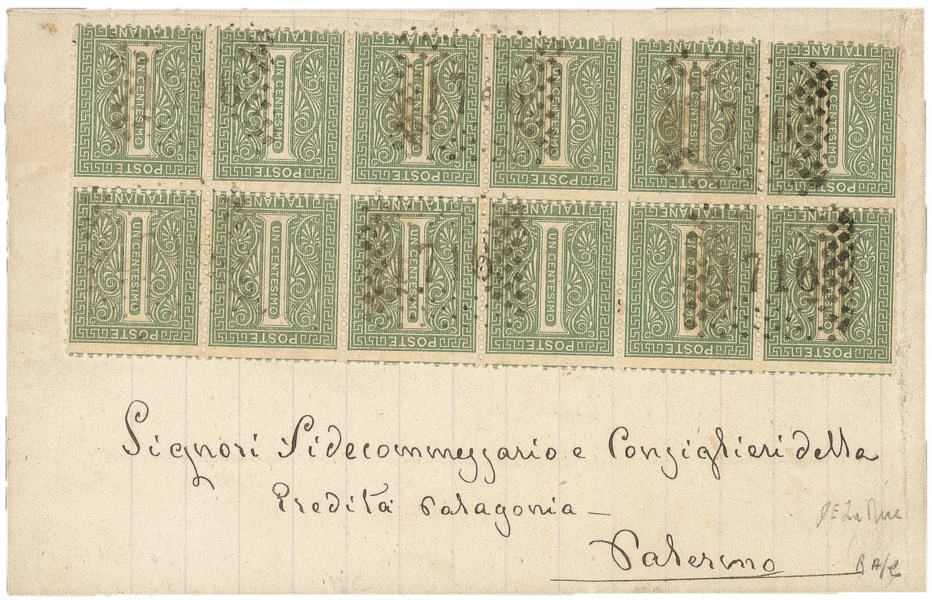 POSTE ITALIANE POSTE ITALIANE POSTE ITALIANE POSTE ITALIANE POSTE ITALIANE POSTE ITALIANE
UN CENTESIMO UN CENTESIMO UN CENTESIMO UN CENTESIMO UN CENTESIMO UN CENTESIMO
POSTE ITALIANE POSTE ITALIANE POSTE ITALIANE POSTE ITALIANE POSTE ITALIANE POSTE ITALIANE
UN CENTESIMO UN CENTESIMO UN CENTESIMO UN CENTESIMO UN CENTESIMO UN CENTESIMO
1716 1716
Signori Fidecommessario e Consiglieri della
Eredità Palagonia –
Palermo
De La Rue